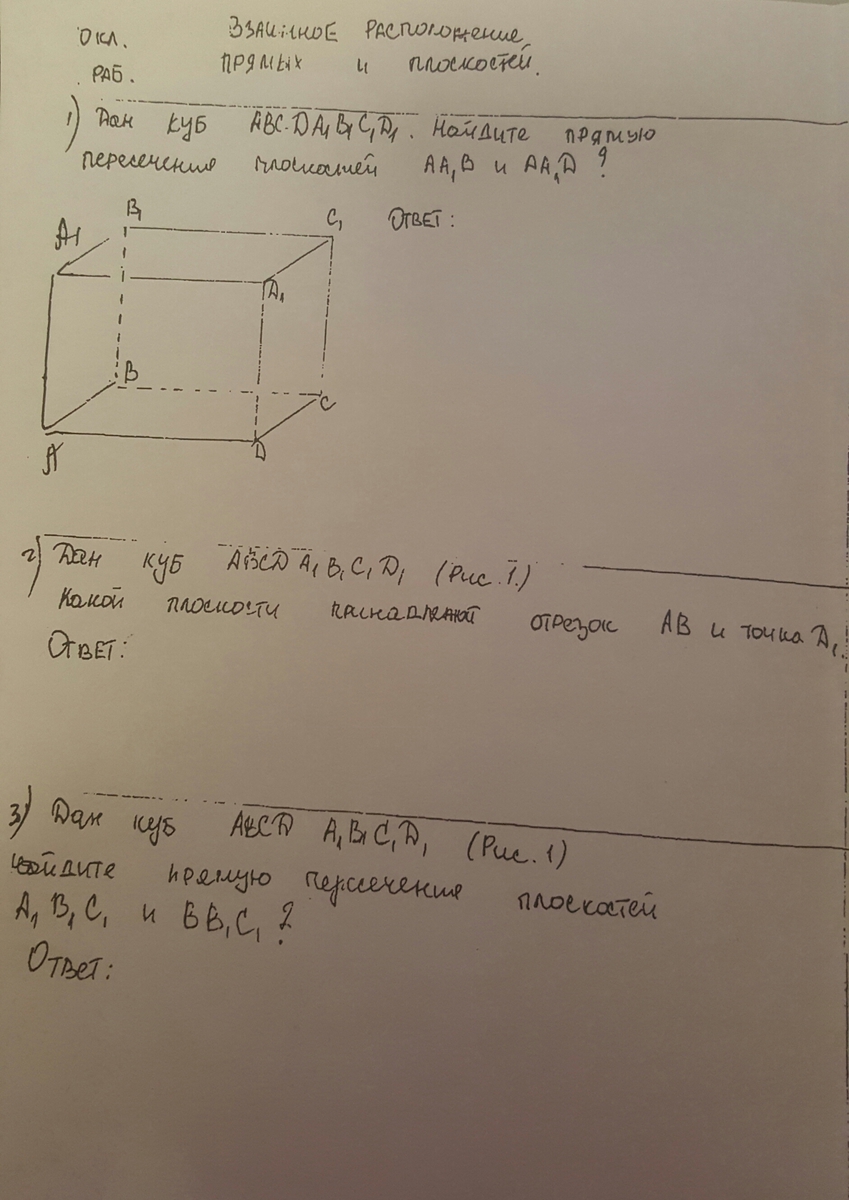 ОКЛ. ВЗАИМНОЕ РАСПОЛОЖЕНИЕ
РАБ. ПРЯМЫХ И ПЛОСКОСТЕЙ.
1) Дан куб ABCDA₁B₁C₁D₁. Найдите прямую
пересечения плоскостей AA₁B и AA₁D ?
Ответ:
B₁
C₁
A₁
D₁
B
C
A
D
2) Дан куб ABCD A₁B₁C₁D₁ (Рис. 1.)
Какой плоскости принадлежат отрезок AB и точка D₁.
Ответ:
3) Дан куб ABCD A₁B₁C₁D₁ (Рис. 1)
Найдите прямую пересечения плоскостей
A₁B₁C₁ и BB₁C₁ ?
Ответ: